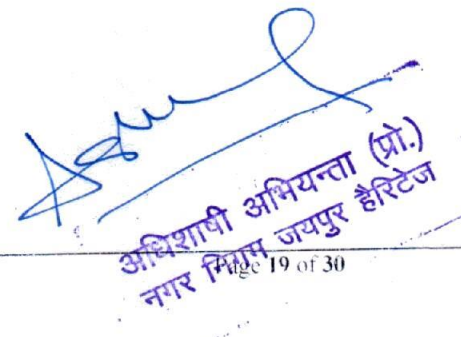 अधिशाषी अभियन्ता (प्रो.)
नगर निगम जयपुर हैरिटेज
Page 19 of 30